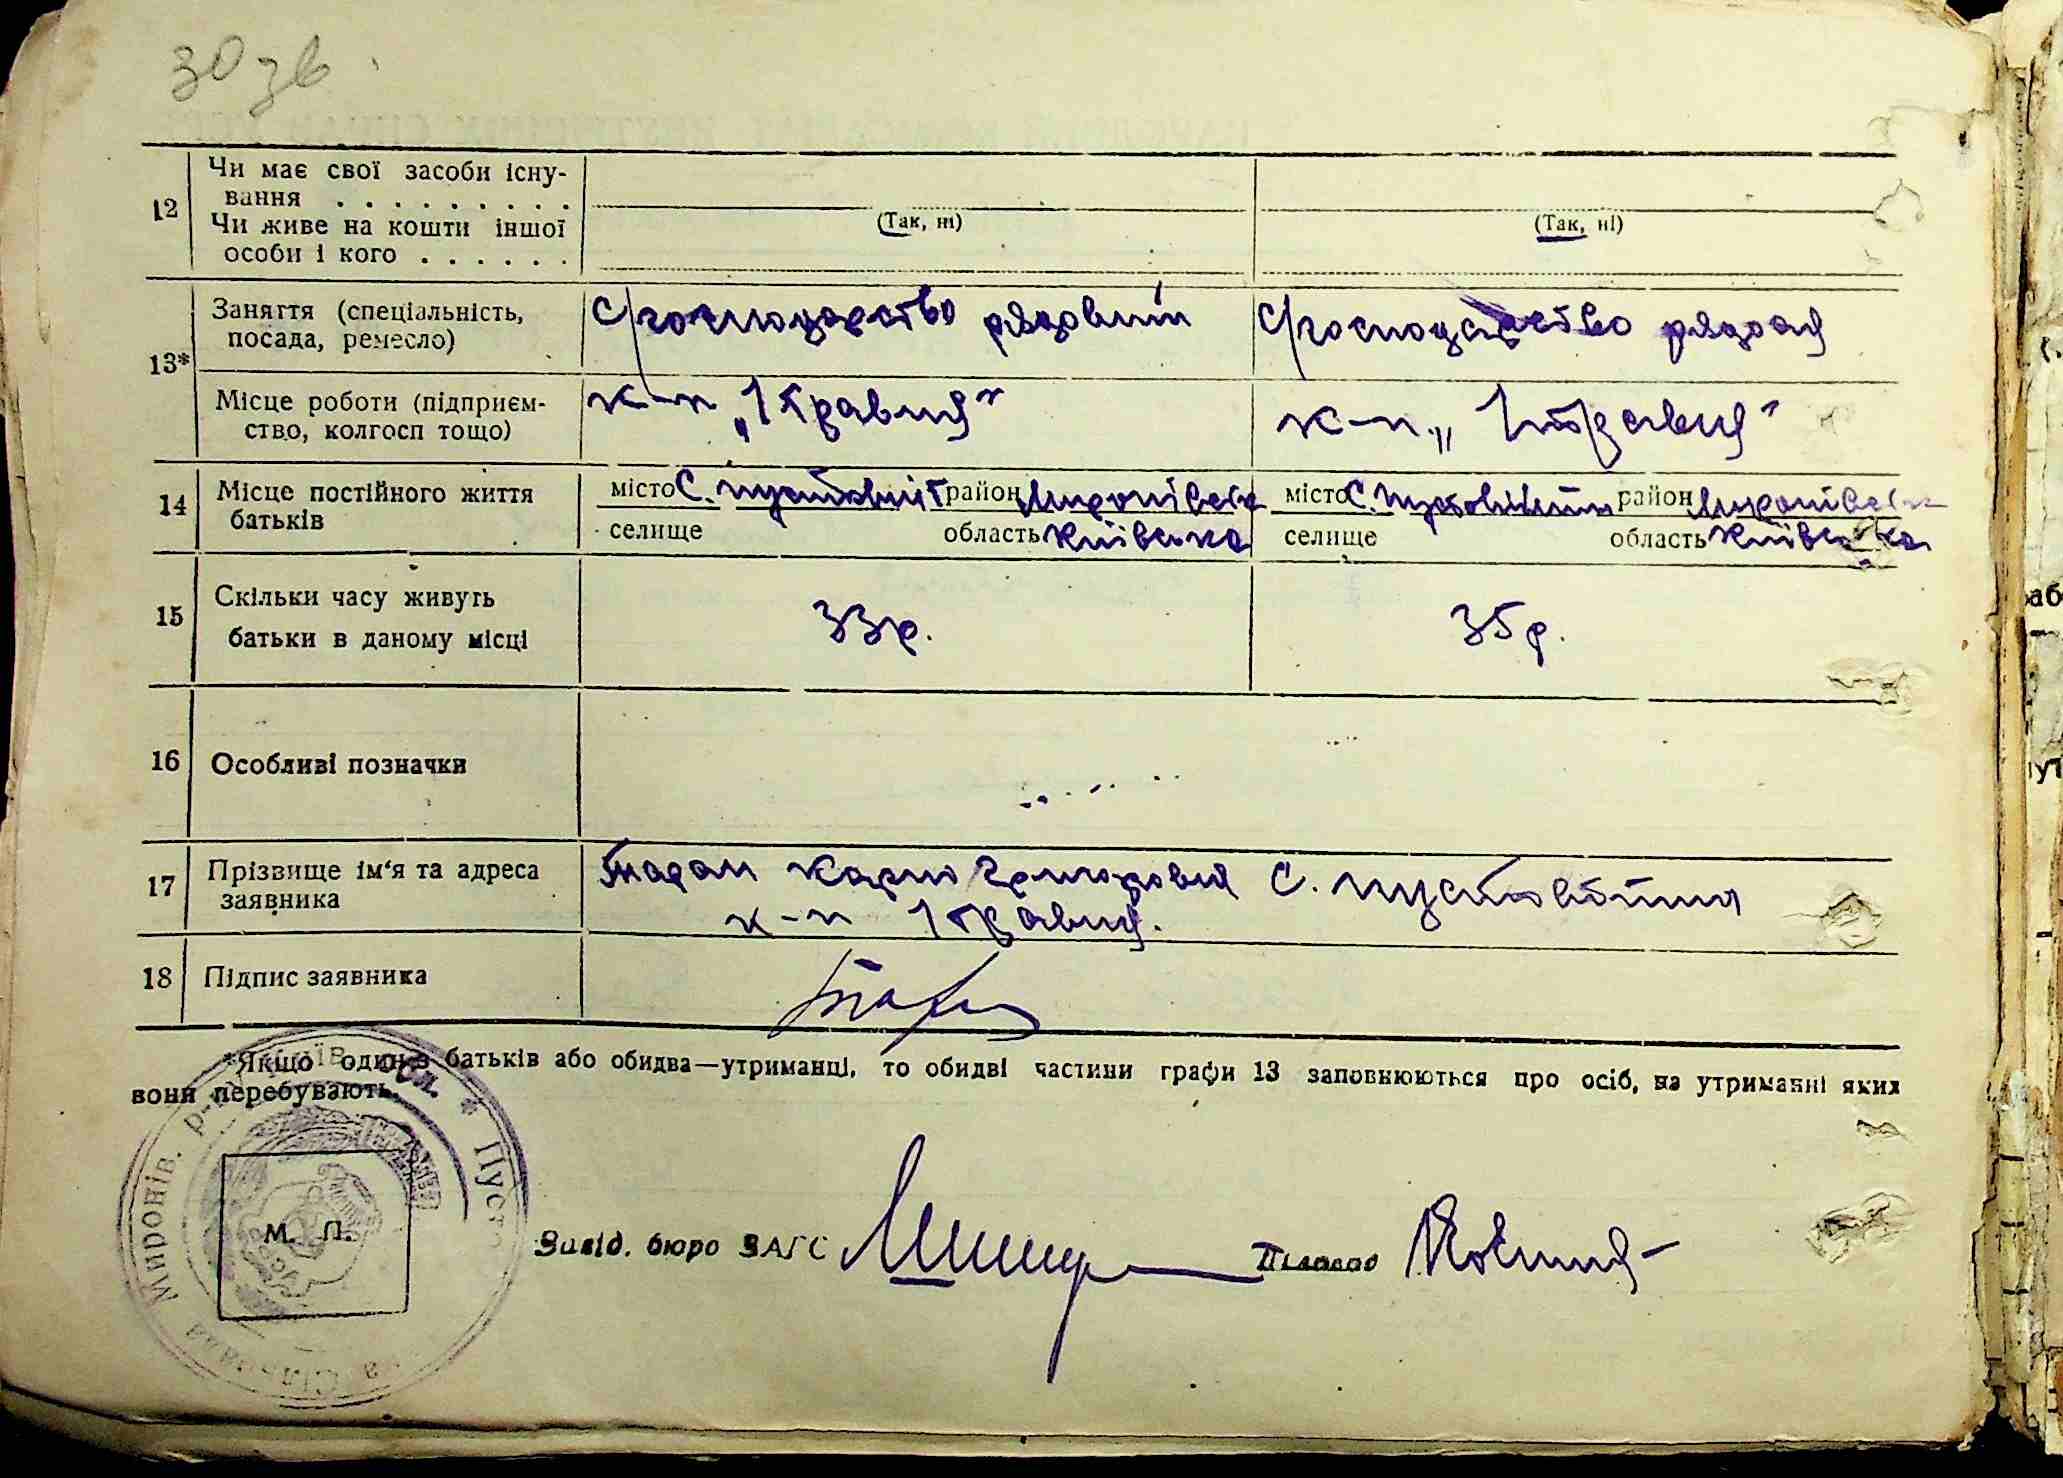 30 зв.
12 Чи має свої засоби існу-
вання . . . . . . . . .
Чи живе на кошти іншої
особи і кого . . . . . .
(Так, ні) (Так, ні)
13* Заняття (спеціальність,
посада, ремесло)
с/господарство рядовий с/господарство рядова
Місце роботи (підприєм-
ство, колгосп тощо)
к-п „1 травня" к-п „1 травня"
14 Місце постійного життя
батьків
місто с. район Миронівськ місто с. район Миронівськ
селище область Київська селище область Київська
15 Скільки часу живуть
батьки в даному місці
33 р. 35 р.
16 Особливі позначки
17 Прізвище ім'я та адреса
заявника
Карпо Григорович с. Пустовійти
к-п 1 травня.
18 Підпис заявника
*Якщо один з батьків або обидва—утриманці, то обидві частини графи 13 заповнюються про осіб, на утриманні яких
вони перебувають.
Миронів. р-н
М. П.
Завід. бюро ЗАГС Діловод